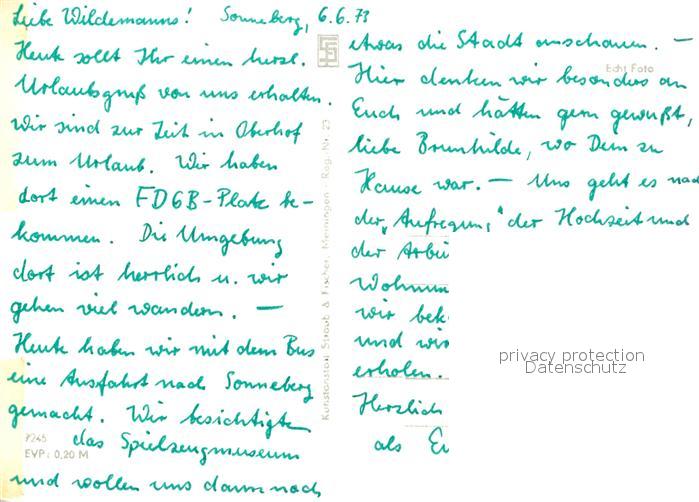 Liebe Wildemanns! Sonneberg, 6.6.73
Heute sollt Ihr einen herzl.
Urlaubsgruß von uns erhalten.
Wir sind zur Zeit in Oberhof
zum Urlaub. Wir haben
dort einen FDGB-Platz be-
kommen. Die Umgebung
dort ist herrlich u. wir
gehen viel wandern. —
Heute haben wir mit dem Bus
eine Ausfahrt nach Sonneberg
gemacht. Wir besichtigten
das Spielzeugmuseum
und wollen uns dann noch
7245
EVP: 0,20 M
Kunstanstalt Straub & Fischer, Meiningen - Reg.-Nr. 23
Echt Foto
etwas die Stadt anschauen. —
Hier denken wir besonders an
Euch und hätten gern gewußt,
liebe Brunhilde, wo Dein zu
Hause war. — Uns geht es nach
der „Aufregung“ der Hochzeit und
der Arbei
Wohnun
wir bek
und wir
erholen.
Herzlich
als Eu
privacy protection
Datenschutz